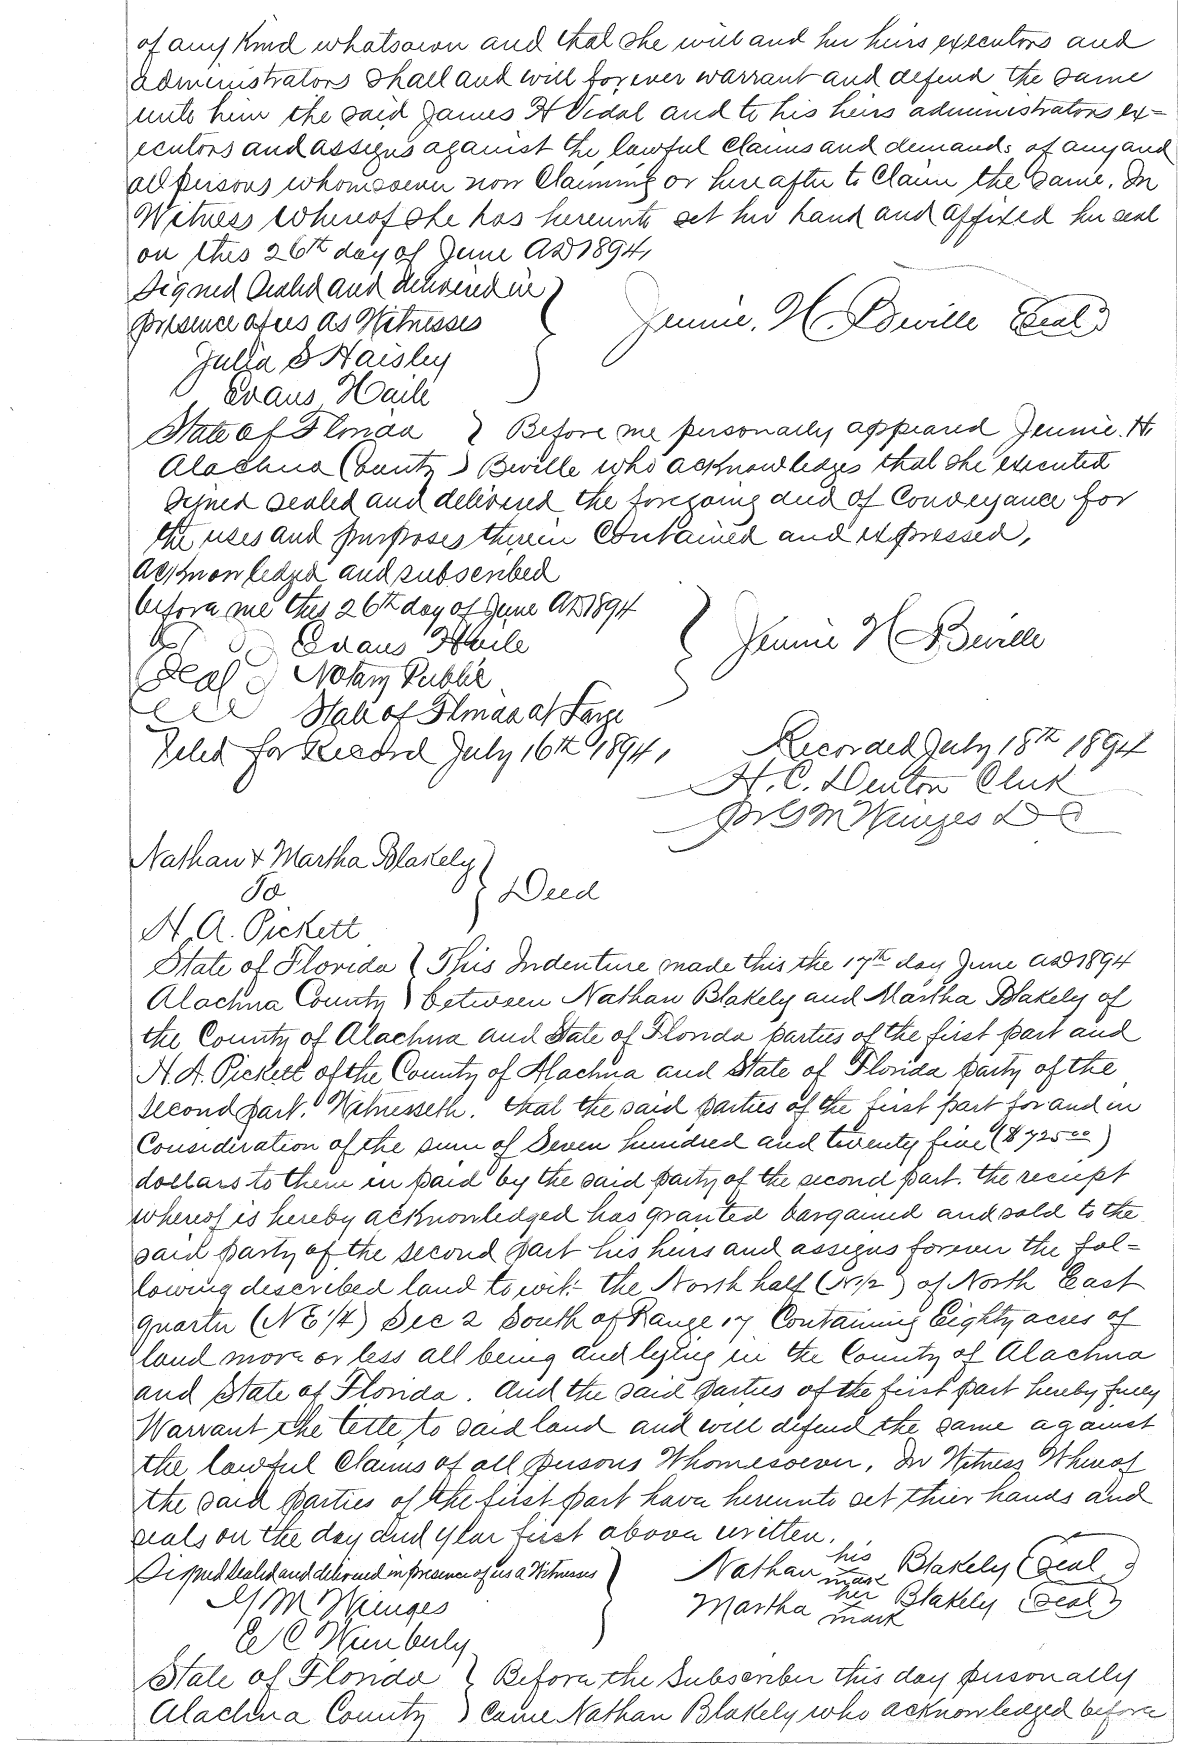 of any Kind whatsoever and that she will and her heirs executors and
administrators shall and will forever warrant and defend the same
unto him the said James H Vidal and to his heirs administrators ex-
ecutors and assigns against the lawful claims and demands of any and
all persons whomsoever now Claiming or hereafter to Claim the same. In
Witness Whereof she has hereunto set her hand and affixed her seal
on this 26th day of June AD 1894,
Signed Sealed and delivered in
presence of us as Witnesses
Jennie. H. Beville (Seal)
Julia S Haisley
Evans Haile
State of Florida } Before me personally appeared Jennie. H.
Alachua County } Beville who acknowledges that she executed
signed sealed and delivered the foregoing deed of Conveyance for
the uses and purposes therein Contained and expressed,
acknowledged and subscribed
before me this 26th day of June AD 1894
Evans Haile
Jennie H Beville
(Seal) Notary Public
State of Florida at Large
Filed for Record July 16th 1894,
Recorded July 18th 1894
H. C. Denton Clerk
pr G M Winges D C
Nathan & Martha Blakely
To } Deed
H. A. Pickett
State of Florida } This Indenture made this the 17th day June AD 1894
Alachua County } between Nathan Blakely and Martha Blakely of
the County of Alachua and State of Florida parties of the first part and
H. A. Pickett of the County of Alachua and State of Florida party of the
second part. Witnesseth. that the said parties of the first part for and in
Consideration of the sum of Seven hundred and twenty five ($725.00)
dollars to them in paid by the said party of the second part. the receipt
whereof is hereby acknowledged has granted bargained and sold to the
said party of the second part his heirs and assigns forever the fol-
lowing described land to wit:- the North half (N 1/2) of North East
quarter (NE 1/4) Sec 2 South of Range 17 Containing Eighty acres of
land more or less all being and lying in the County of Alachua
and State of Florida. And the said parties of the first part hereby fully
Warrant the title to said land and will defend the same against
the lawful Claims of all persons Whomesoever. In Witness Whereof
the said parties of the first part have hereunto set thier hands and
seals on the day and year first above written.
Signed Sealed and delivered in presence of us as Witnesses
Nathan his mark Blakely (Seal)
G M Winges
Martha her mark Blakely (Seal)
E C Wimberly
State of Florida } Before the Subscriber this day personally
Alachua County } Came Nathan Blakely who acknowledged before